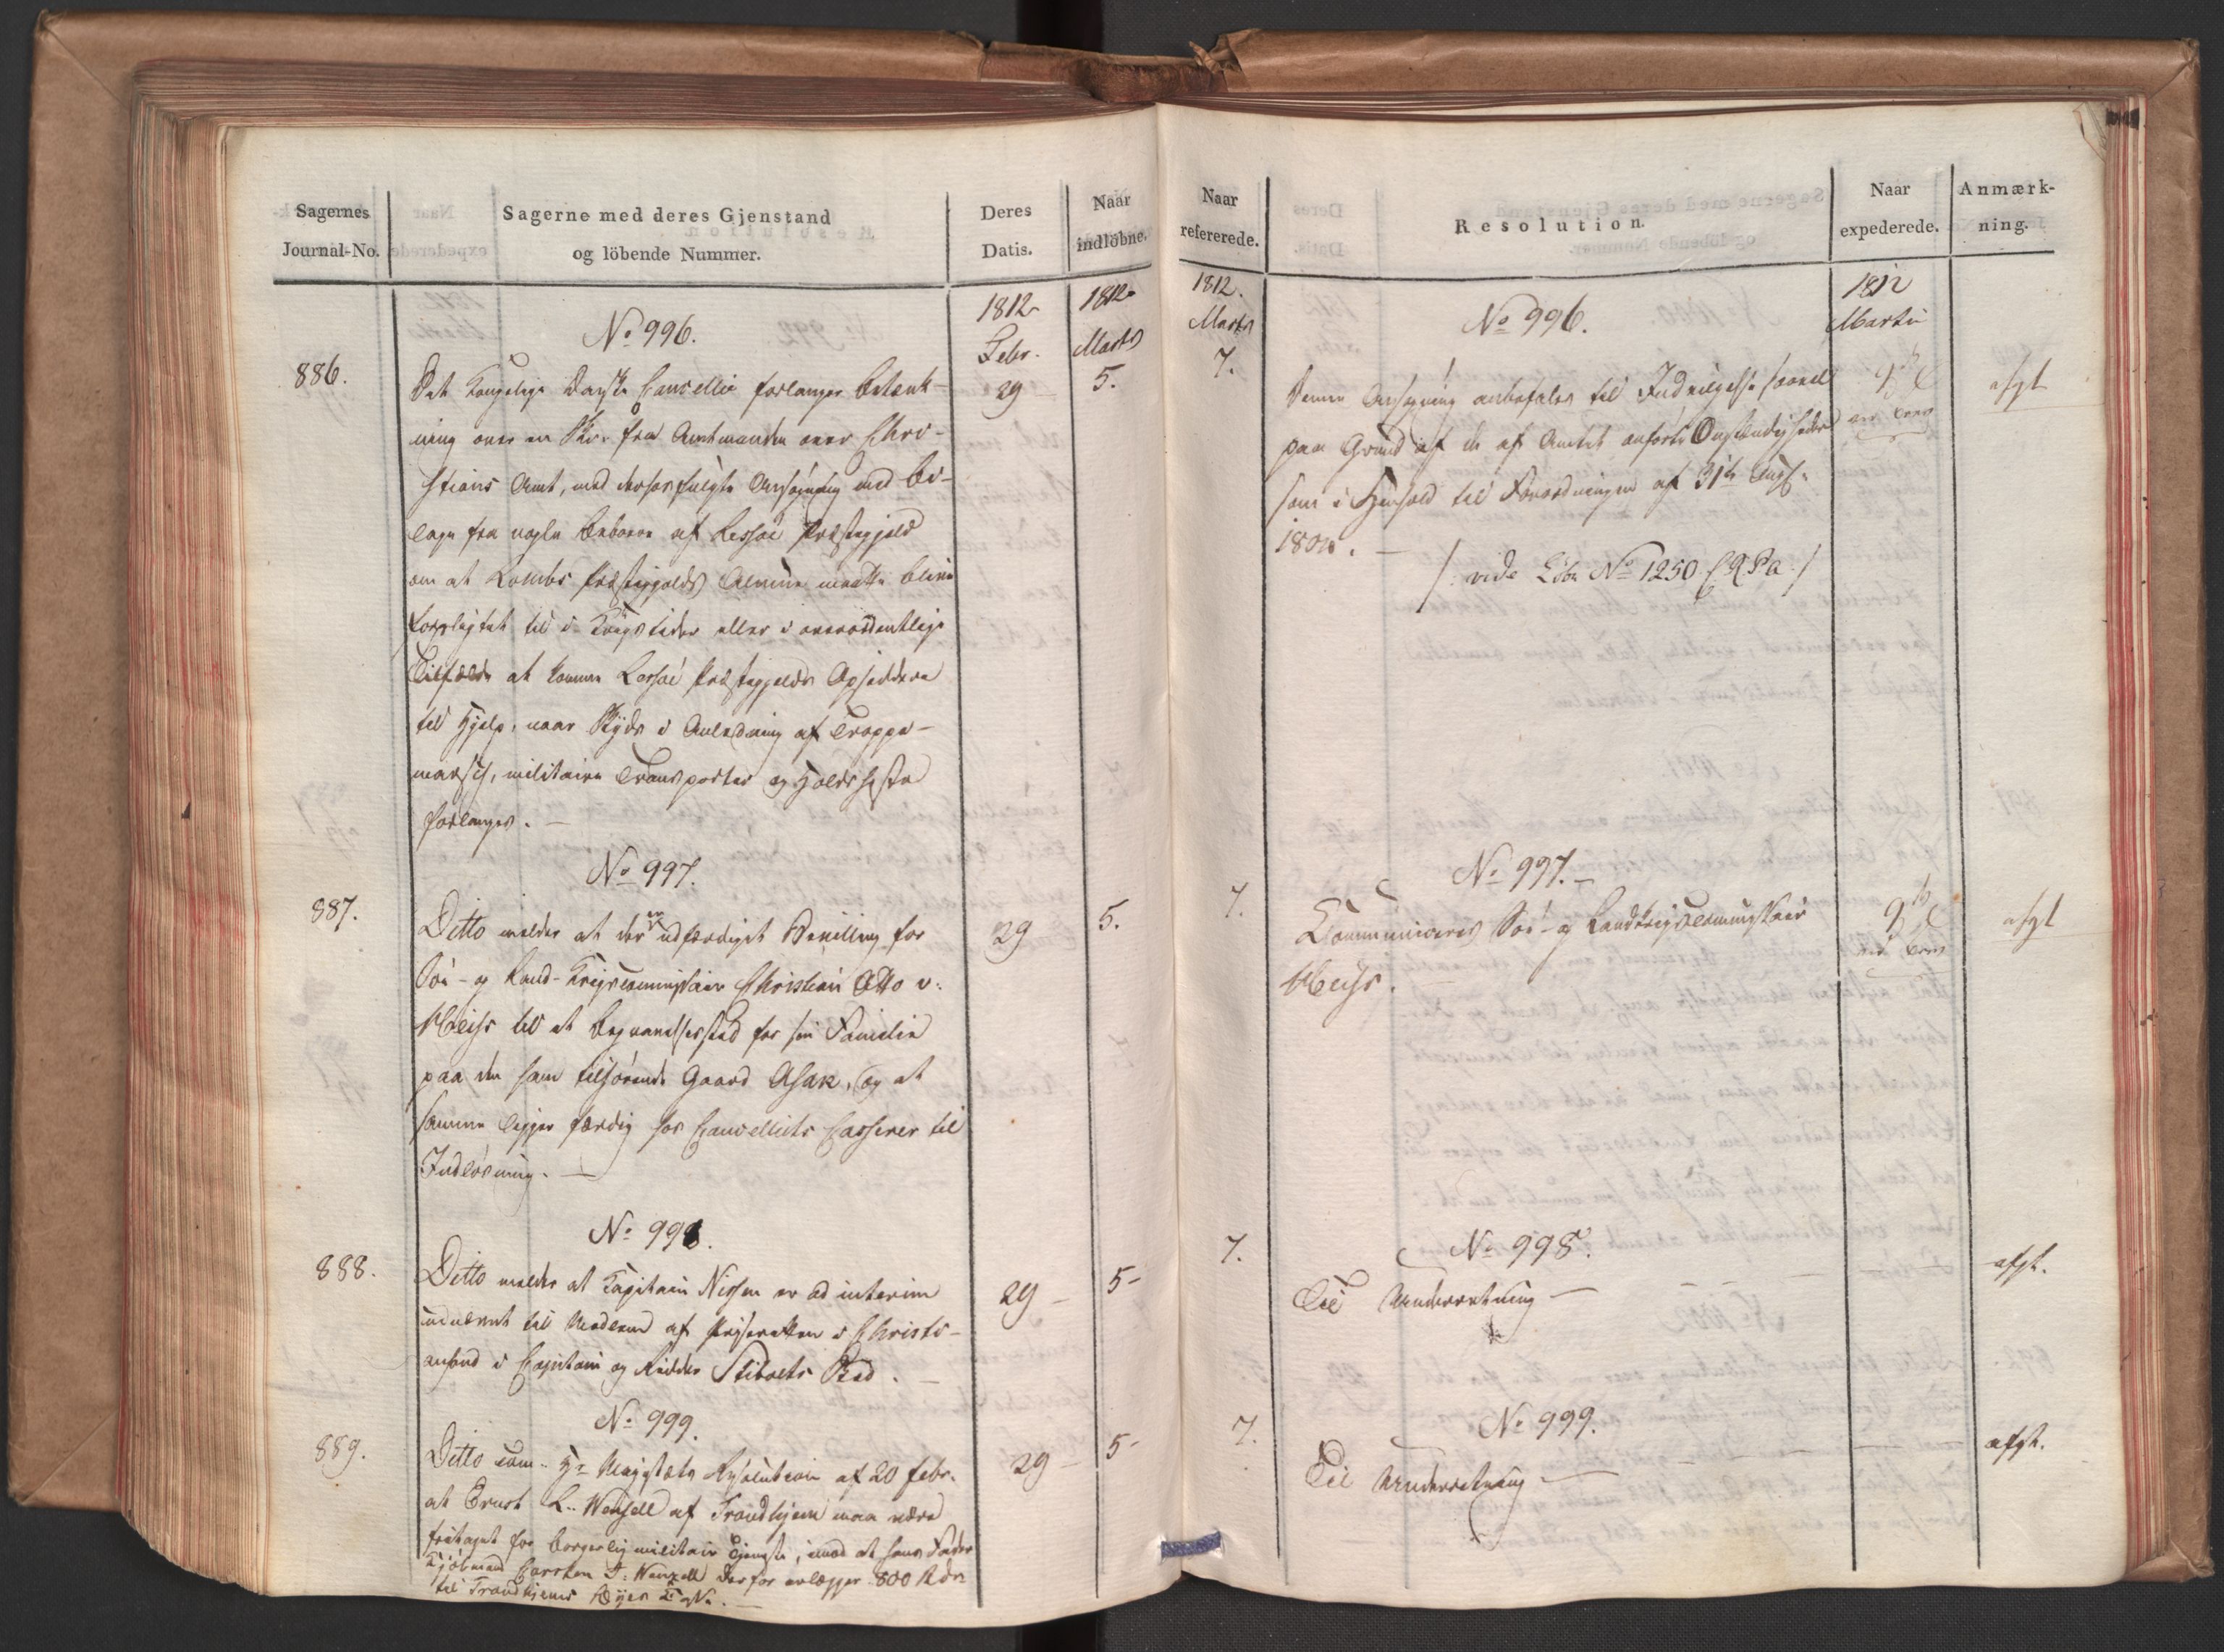 Sagernes
Journal-No.
Sagerne med deres Gjenstand
og löbende Nummer.
Deres
Datis.
Naar
indlöbne.
1812
Febr.
1812
Marts
No 996.
886.
29
5.
Det Kongelige Danske Cancellie forlanger Betænk-
ning over en Skr. fra Amtmanden over Chri-
stians Amt, med derhos fulgte Ansøgning med Bi-
lage fra nogle Beboere af Lessøe Præstegjeld
om at Lombs Præstegjelds Almue maatte blive
forpligtet til i Krigstider eller i overordentlige
Tilfælde at komme Lessøe Præstegjelds Opsiddere
til Hjelp, naar Skyds i Anledning af Troppe-
marsch, militaire Transporter og Holdsheste
forlanges.
No 997.
887.
29
5.
Ditto melder at der er udfærdiget Bevilling for
Søe- og Land-Krigscommissair Christian Otto v.
til et Begravelsessted for sin Familie
paa den ham tilhørende Gaard Asak, og at
samme ligger færdig hos Cancelliets Casserer til
Indløsning.
No 998.
888.
29
5
Ditto melder at Capitain Nissen er ad interim
udnævnt til Medlem af Priseretten i Christi-
ansund i Capitain og Ridder Stibolts Sted.
No 999.
889.
29
5
Ditto com. Hs Majestæts Resolution af 20 Febr.
at Ernst L. Wensell af Trondhjem maa være
fritaget for borgerlig militair Tjeneste, imod at hans Fader
Kjøbmand Carsten F. Wensell derfor erlægger 800 Rdr
til Trondhjems
Naar
refererede.
Resolution.
Naar
expederede.
Anmærk-
ning.
1812.
Marts
1812
Martii
No 996.
7.
Denne Ansøgning anbefales til Indvilgelse saavel
paa Grund af de af Amtet anførte Omstændigheder
som i Henhold til Forordningen af 31te Aug.
9de
afgt
/: vide Lbr. No 1250 :/
No 997.
7.
Communiceres Søe- og Landkrigscommissair
9de
afgt
No 998.
7.
Til Underretning
afgt.
No 999.
7.
Til Underretning
afgt.